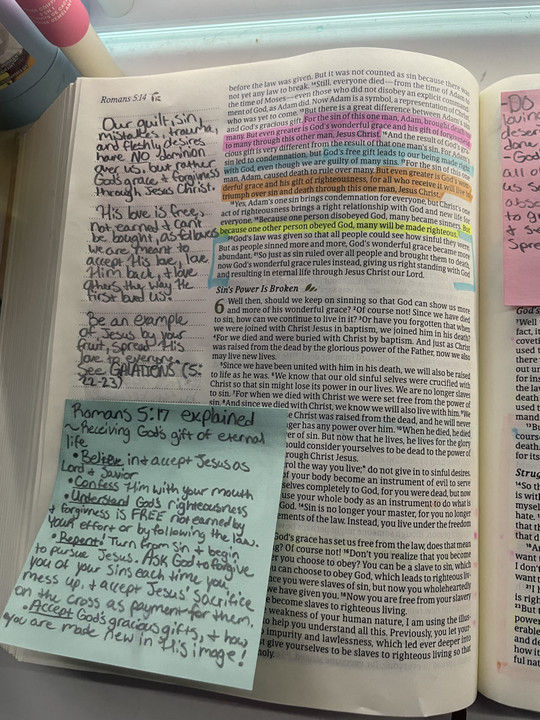 Romans 5:14
Our guilt, sin,
mistakes, trauma,
and fleshly desires
have NO dominion
over us, but rather
God's grace & forgiveness
through Jesus Christ.
His love is free,
not earned & can't
be bought, as followers
we are meant to
accept His love, love
Him back, & love
others the way He
first loved us!
Be an example
of Jesus by your
fruit, spread His
love to everyone.
See GALATIONS (5:
22-23)
Romans 5:17 explained
~Receiving God's gift of eternal
life
• Believe in & accept Jesus as
Lord & Savior
• Confess Him with your mouth
• Understand God's righteousness
& forgivness is FREE not earned by
your effort or by following the law.
• Repent! Turn from Sin & begin
to pursue Jesus. Ask God to forgive
you of your sins each time you
mess up, & accept Jesus' Sacrifice
on the Cross as payment for them.
• Accept God's gracious gifts, & how
you are made new in His image!
before the law was given. But it was not counted as sin because there was
not yet any law to break. 14Still, everyone died—from the time of Adam to
the time of Moses—even those who did not disobey an explicit command
of God, as Adam did. Now Adam is a symbol, a representation of Christ,
who was yet to come. 15But there is a great difference between Adam's sin
and God's gracious gift. For the sin of this one man, Adam, brought death to
many. But even greater is God's wonderful grace and his gift of forgiveness
to many through this other man, Jesus Christ. 16And the result of God's gra-
cious gift is very different from the result of that one man's sin. For Adam's
sin led to condemnation, but God's free gift leads to our being made right
with God, even though we are guilty of many sins. 17For the sin of this one
man, Adam, caused death to rule over many. But even greater is God's won-
derful grace and his gift of righteousness, for all who receive it will live in
triumph over sin and death through this one man, Jesus Christ.
18Yes, Adam's one sin brings condemnation for everyone, but Christ's one
act of righteousness brings a right relationship with God and new life for
everyone. 19Because one person disobeyed God, many became sinners. But
because one other person obeyed God, many will be made righteous.
20God's law was given so that all people could see how sinful they were.
But as people sinned more and more, God's wonderful grace became more
abundant. 21So just as sin ruled over all people and brought them to death,
now God's wonderful grace rules instead, giving us right standing with God
and resulting in eternal life through Jesus Christ our Lord.
Sin's Power Is Broken
6 Well then, should we keep on sinning so that God can show us more
and more of his wonderful grace? 2Of course not! Since we have died
to sin, how can we continue to live in it? 3Or have you forgotten that when
we were joined with Christ Jesus in baptism, we joined him in his death?
4For we died and were buried with Christ by baptism. And just as Christ
was raised from the dead by the glorious power of the Father, now we also
may live new lives.
5Since we have been united with him in his death, we will also be raised
to life as he was. 6We know that our old sinful selves were crucified with
Christ so that sin might lose its power in our lives. We are no longer slaves
to sin. 7For when we died with Christ we were set free from the power of
sin. 8And since we died with Christ, we know we will also live with him. 9We
Christ was raised from the dead, and he will never
longer has any power over him. 10When he died, he died
er of sin. But now that he lives, he lives for the glory
should consider yourselves to be dead to the power of
ough Christ Jesus.
ol the way you live; do not give in to sinful desires.
of your body become an instrument of evil to serve
selves completely to God, for you were dead, but now
use your whole body as an instrument to do what is
God. 14Sin is no longer your master, for you no longer
ments of the law. Instead, you live under the freedom
God's grace has set us free from the law, does that mean
g? Of course not! 16Don't you realize that you become
you choose to obey? You can be a slave to sin, which
can choose to obey God, which leads to righteous liv-
you were slaves of sin, but now you wholeheartedly
we have given you. 18Now you are free from your slavery
become slaves to righteous living.
weakness of your human nature, I am using the illus-
o help you understand all this. Previously, you let your
impurity and lawlessness, which led ever deeper into
give yourselves to be slaves to righteous living so that
holy.